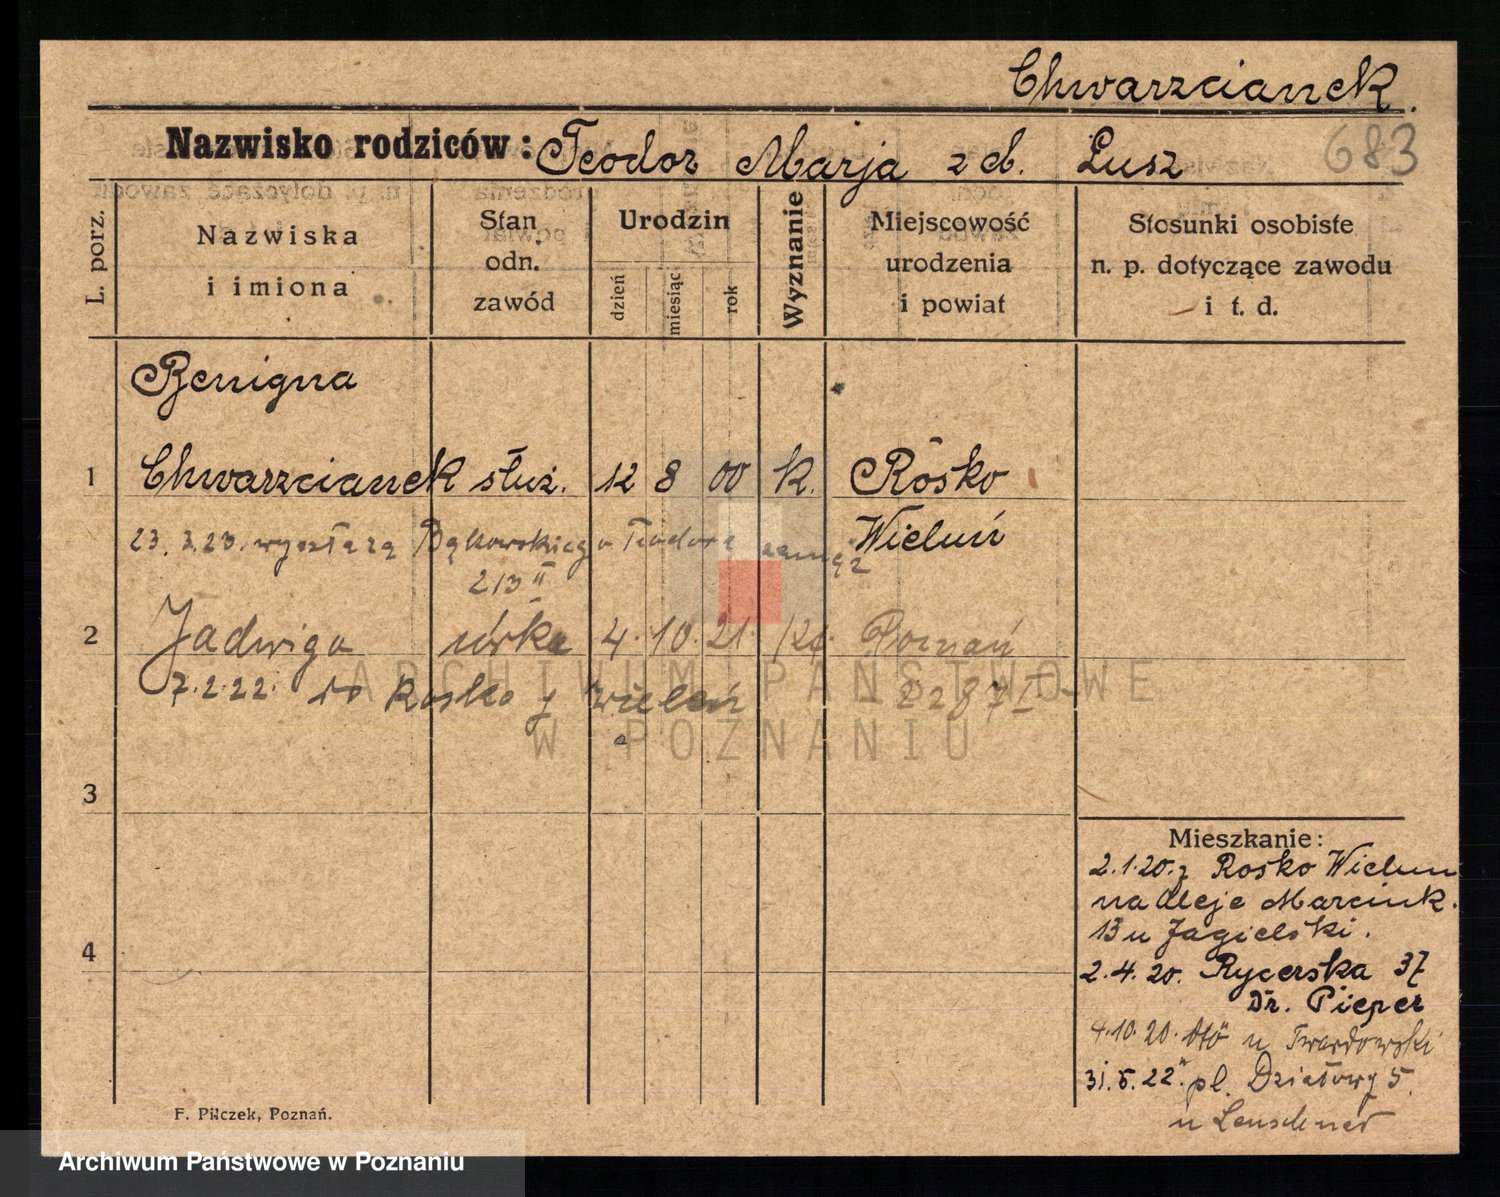 Chwarzcianek.
Nazwisko rodziców: Teodor Marja z d. Lusz
683
L. porz.
Nazwiska i imiona
Stan odn. zawód
Urodzin
dzień
miesiąc
rok
Wyznanie
Miejscowość urodzenia i powiat
Stosunki osobiste n. p. dotyczące zawodu i t. d.
Benigna
1 Chwarzcianek służ. 12 8 00 k. Rosko
Wieluń
23. 3. 23. wyszła za Bąkowskiego Teodora zamęż
213 II
2 Jadwiga córka 4. 10. 21. kł. Poznań
7.2.22. do Rosko Wieleń
3
4
Mieszkanie:
2.1.20. z Rosko Wielun
na Aleje Marcink.
13 u Jagielski.
2.4.20. Rycerska 37
Dr. Pieper
4.10.20. u Twardowski
31.5.22. pl. Działowy 5
u
F. Pilczek, Poznań.
ARCHIWUM PAŃSTWOWE
W POZNANIU
Archiwum Państwowe w Poznaniu